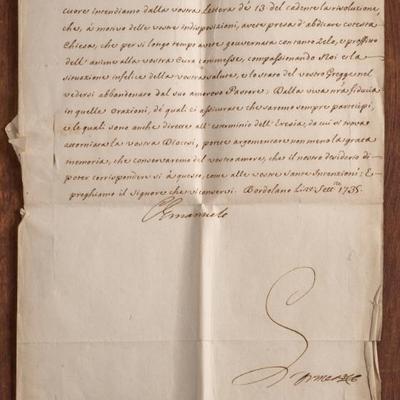 cuore intendiamo dalla vostra lettera de 13 del cadente la risoluzione,
che, à motivo delle vostre indisposizioni, avete presa d'abdicare cotesta
Chiesa, che per sì longo tempo avete governata con tanto Zelo, e profitto
dell'anime alla vostra Cura commesse, compassionando Noi e la
situazione infelice della vostra salute, e lo stato del vostro Gregge nel
vedersi abbandonato dal suo amoroso Pastore: Dalla viva nostra fiducia
in quelle orazioni, di quali ci assicurate che saremo sempre partecipi,
e le quali sono anche dirette all'esterminio dell'Eresia, da cui si trova
attorniata la vostra Diocesi, potete argomentare non meno la grata
memoria, che conservaremo del vostro amore, che il nostro desiderio di
poter corrispondere sì à questo, come alle vostre Sante Intenzioni: E
preghiamo il Signore che vi conservi: Bordolano li Sett.re 1735
CEmanuele